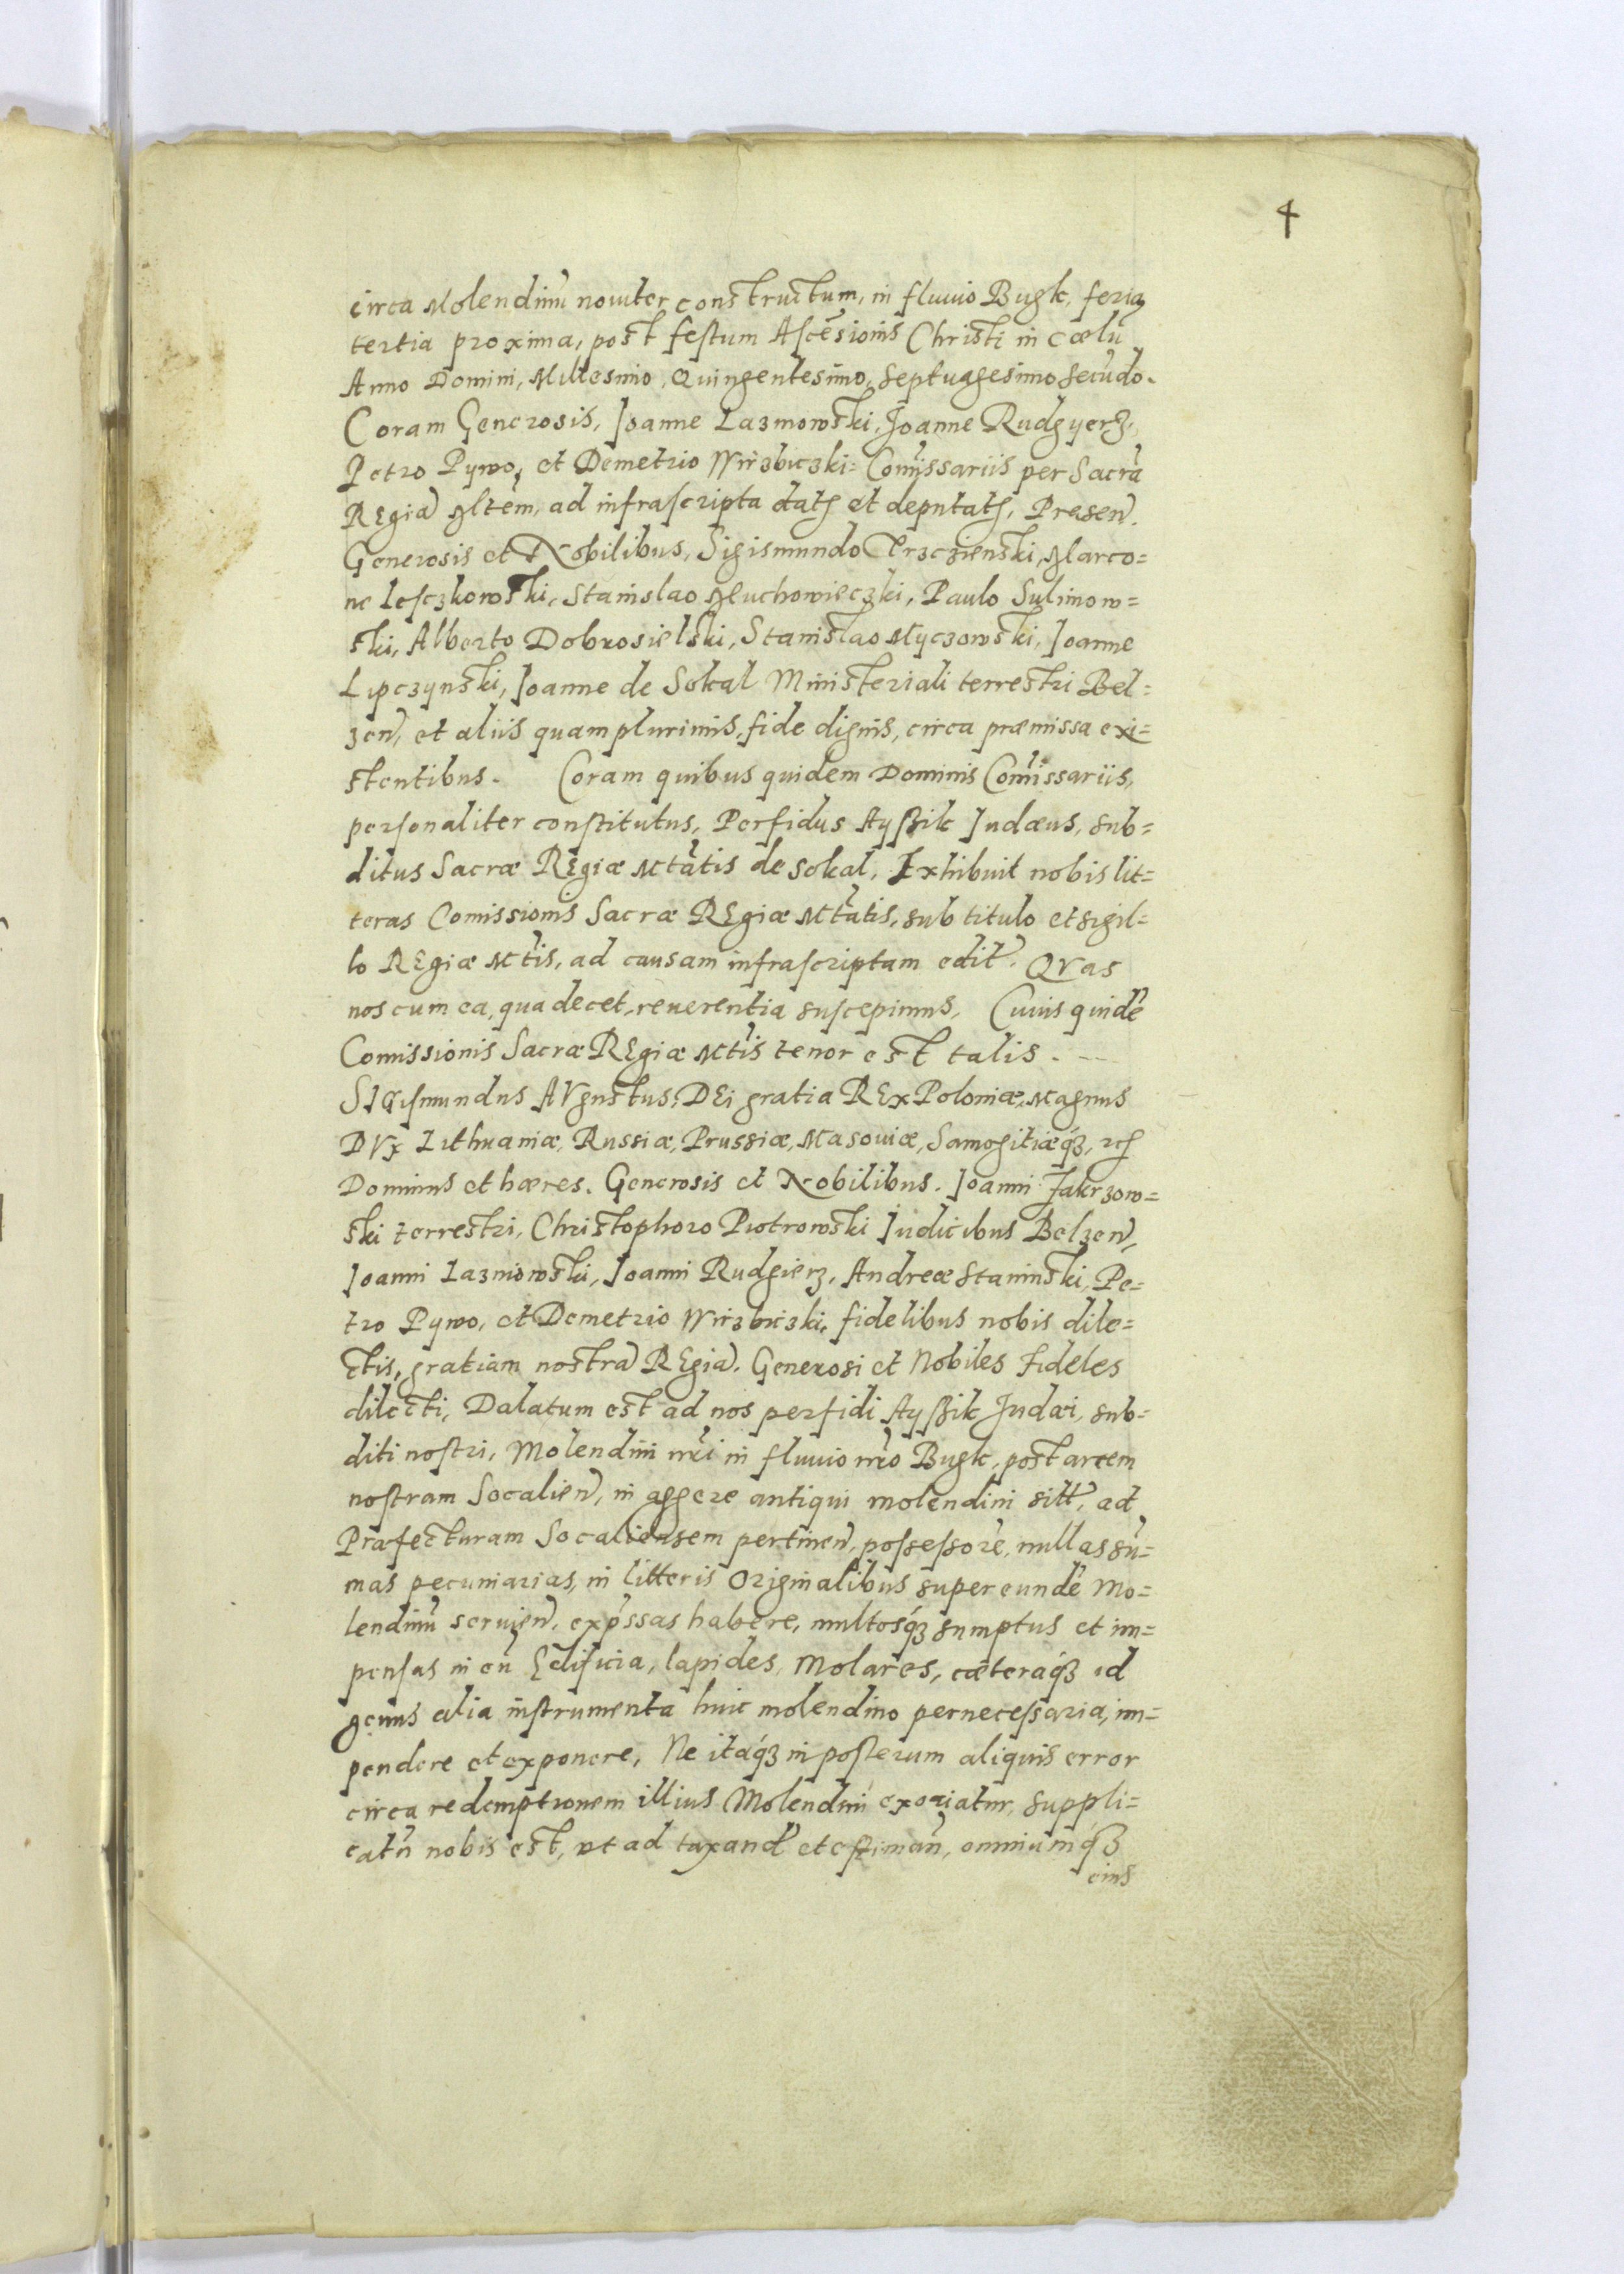 4
circa Molendinū nouiter constructum, in fluuio Bugk, feria
tertia proxima, post festum Ascēsionis Christi in cœlū
Anno Domini, Millesimo, Quingentesimo, Septuagesimo secūdo.
Coram Generosis, Joanne Lazniowski, Joanne Rudgyerz,
Petro Pywo, et Demetrio Wirzbiczki Com̃issariis per Sacrā
REgiā Mltem, ad infrascripta datꝭ et deputatꝭ, Præsen̄.
Generosis et Nobilibus, Sigismundo Trzczienski, Marco=
ne Lesczkowski, Stanislao Mluchowieczki, Paulo Sulimow=
ski, Alberto Dobrosielski, Stanislao Myczowski, Joanne
Lipczynski, Joanne de Sokal Ministeriali terrestri Bel=
zen̄, et aliis quamplurimis, fide dignis, circa præmissa exi=
stentibus. Coram quibus quidem Dominis Com̃issariis,
personaliter constitutus, Perfidus Ayßik Judæus, sub=
ditus Sacræ REgiæ Mtātis de Sokal, Exhibuit nobis lit=
teras Comissionis Sacræ REgiæ Mtātis, sub titulo et sigil=
lo REgiæ Mtis, ad causam infrascriptam edit̄. QVas
nos cum ea, qua decet, reuerentia suscepimus, Cuius quidē
Comissionis Sacræ REgiæ Mtis tenor est talis.
SIGismundus AVgustus, DEi gratia REx Poloniæ, Magnus
DVx Lithuaniæ, Russiæ, Prussiæ, Masouiæ, Samogitiæqꝫ, ⁊cꝭ
Dominus et hæres. Generosis et Nobilibus. Joanni Jakrzow=
ski terrestri, Christophoro Piotrowski Judicibus Belzen̄,
Joanni Lazniowski, Joanni Rudgierz, Andreæ Staninski, Pe=
tro Pywo, et Demetrio Wirzbiczki, fidelibus nobis dile=
ctis, gratiam nostrā REgiā. Generosi et Nobiles Fideles
dilecti, Dalatum est ad nos perfidi Ayßik Judæi, sub=
diti nostri, Molendini nr̄i in fluuio nr̄o Bugk, post arcem
nostram Socalien̄, in aggere antiqui molendini sitt̄, ad
Præfecturam Socaliensem pertinen̄, possessorē, nullas sū=
mas pecuniarias, in litteris Originalibus super eundē Mo=
lendinū seruien̄, exp̄ssas habere, multosqꝫ sumptus et im=
pensas in eū Edificia, lapides, Molares, cæteraqꝫ id
genus alia instrumenta huic molendino pernecessaria, im=
pendere et exponere, Ne itaqꝫ in posterum aliquis error
circa redemptionem illius Molendini exoriatur, suppli=
catū nobis est, vt ad taxand̄ et estiman̄, omniumqꝫ
eius